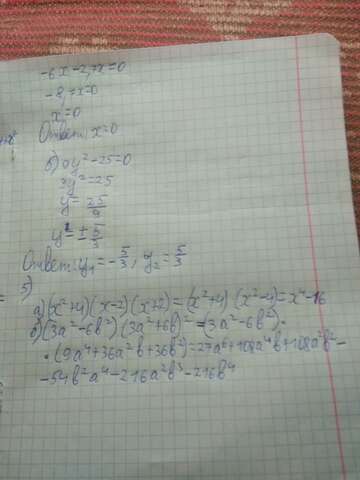 -6x-2,7x=0
-8,7x=0
x=0
Ответ: x=0
б) 9y²-25=0
9y²=25
y²=25/9
y=±5/3
Ответ: y₁=-5/3, y₂=5/3
5)
а) (x²+4)(x-2)(x+2)=(x²+4)·(x²-4)=x⁴-16
б) (3a²-6b²)(3a²+6b)²=(3a²-6b²)·
·(9a⁴+36a²b+36b²)=27a⁶+108a⁴b+108a²b²-
-54b²a⁴-216a²b³-216b⁴